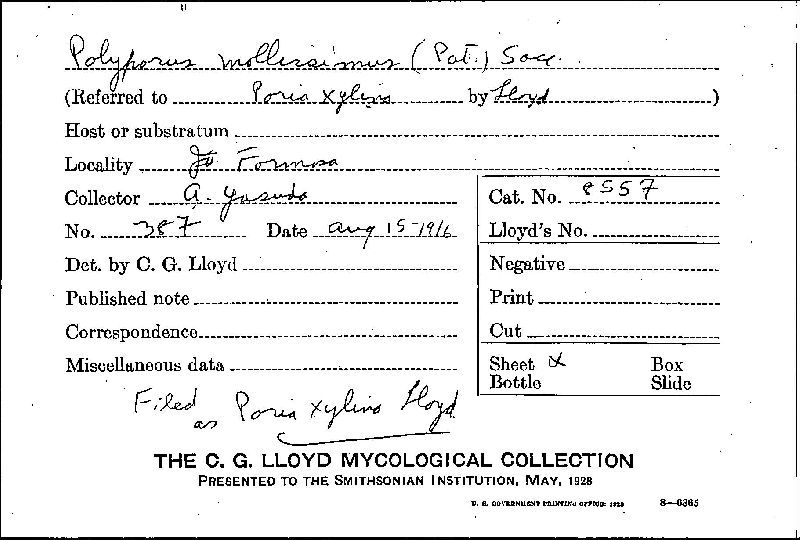 Polyporus mollissimus (Pat.) Sacc.
(Referred to Poria xylina by Lloyd)
Host or substratum
Locality Formosa
Collector A. Yasuda
Cat. No. 8557
No. 387 Date Aug 15-1916
Lloyd's No.
Det. by C. G. Lloyd
Negative
Published note
Print
Correspondence
Cut
Miscellaneous data
Sheet x Box
Bottle Slide
Filed as Poria xylina Lloyd
THE C. G. LLOYD MYCOLOGICAL COLLECTION
PRESENTED TO THE SMITHSONIAN INSTITUTION, MAY, 1928
U. S. GOVERNMENT PRINTING OFFICE: 1928 8—6365